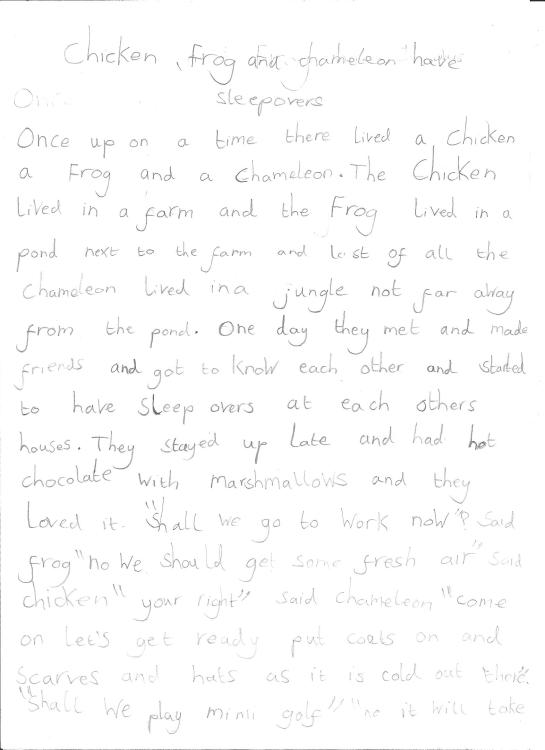 Chicken, frog and chameleon have
Once
sleepovers
Once up on a time there lived a chicken
a Frog and a Chameleon. The Chicken
lived in a farm and the Frog lived in a
pond next to the farm and last of all the
Chameleon lived in a jungle not far away
from the pond. One day they met and made
friends and got to know each other and started
to have sleep overs at each others
houses. They stayed up late and had hot
chocolate with marshmallows and they
Loved it. "Shall we go to work now"? Said
frog "no we should get some fresh air" said
chicken" your right" said chameleon "come
on let's get ready put coats on and
scarves and hats as it is cold out
"Shall we play minii golf" "no it will take